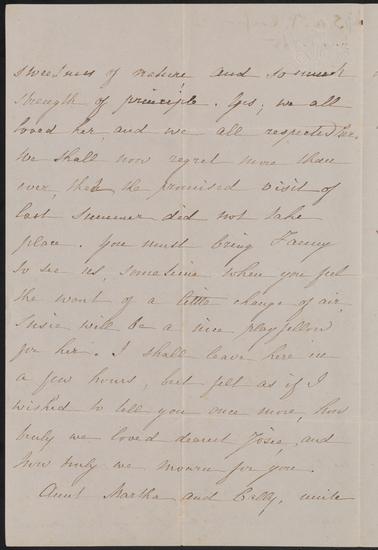 sweetness of nature, and so much
strength of principle. Yes; we all
loved her, and we all respected her.
We shall now regret more than
ever, that the promised visit of
last summer did not take
place. You must bring Fanny
to see us, sometime, when you feel
the want of a little change of air,
Susie will be a nice playfellow
for her. I shall leave here in
a few hours, but felt as if I
wished to tell you once more, how
truly we loved dearest Josie, and
how truly we mourn for you.
Aunt Martha and Celly, unite